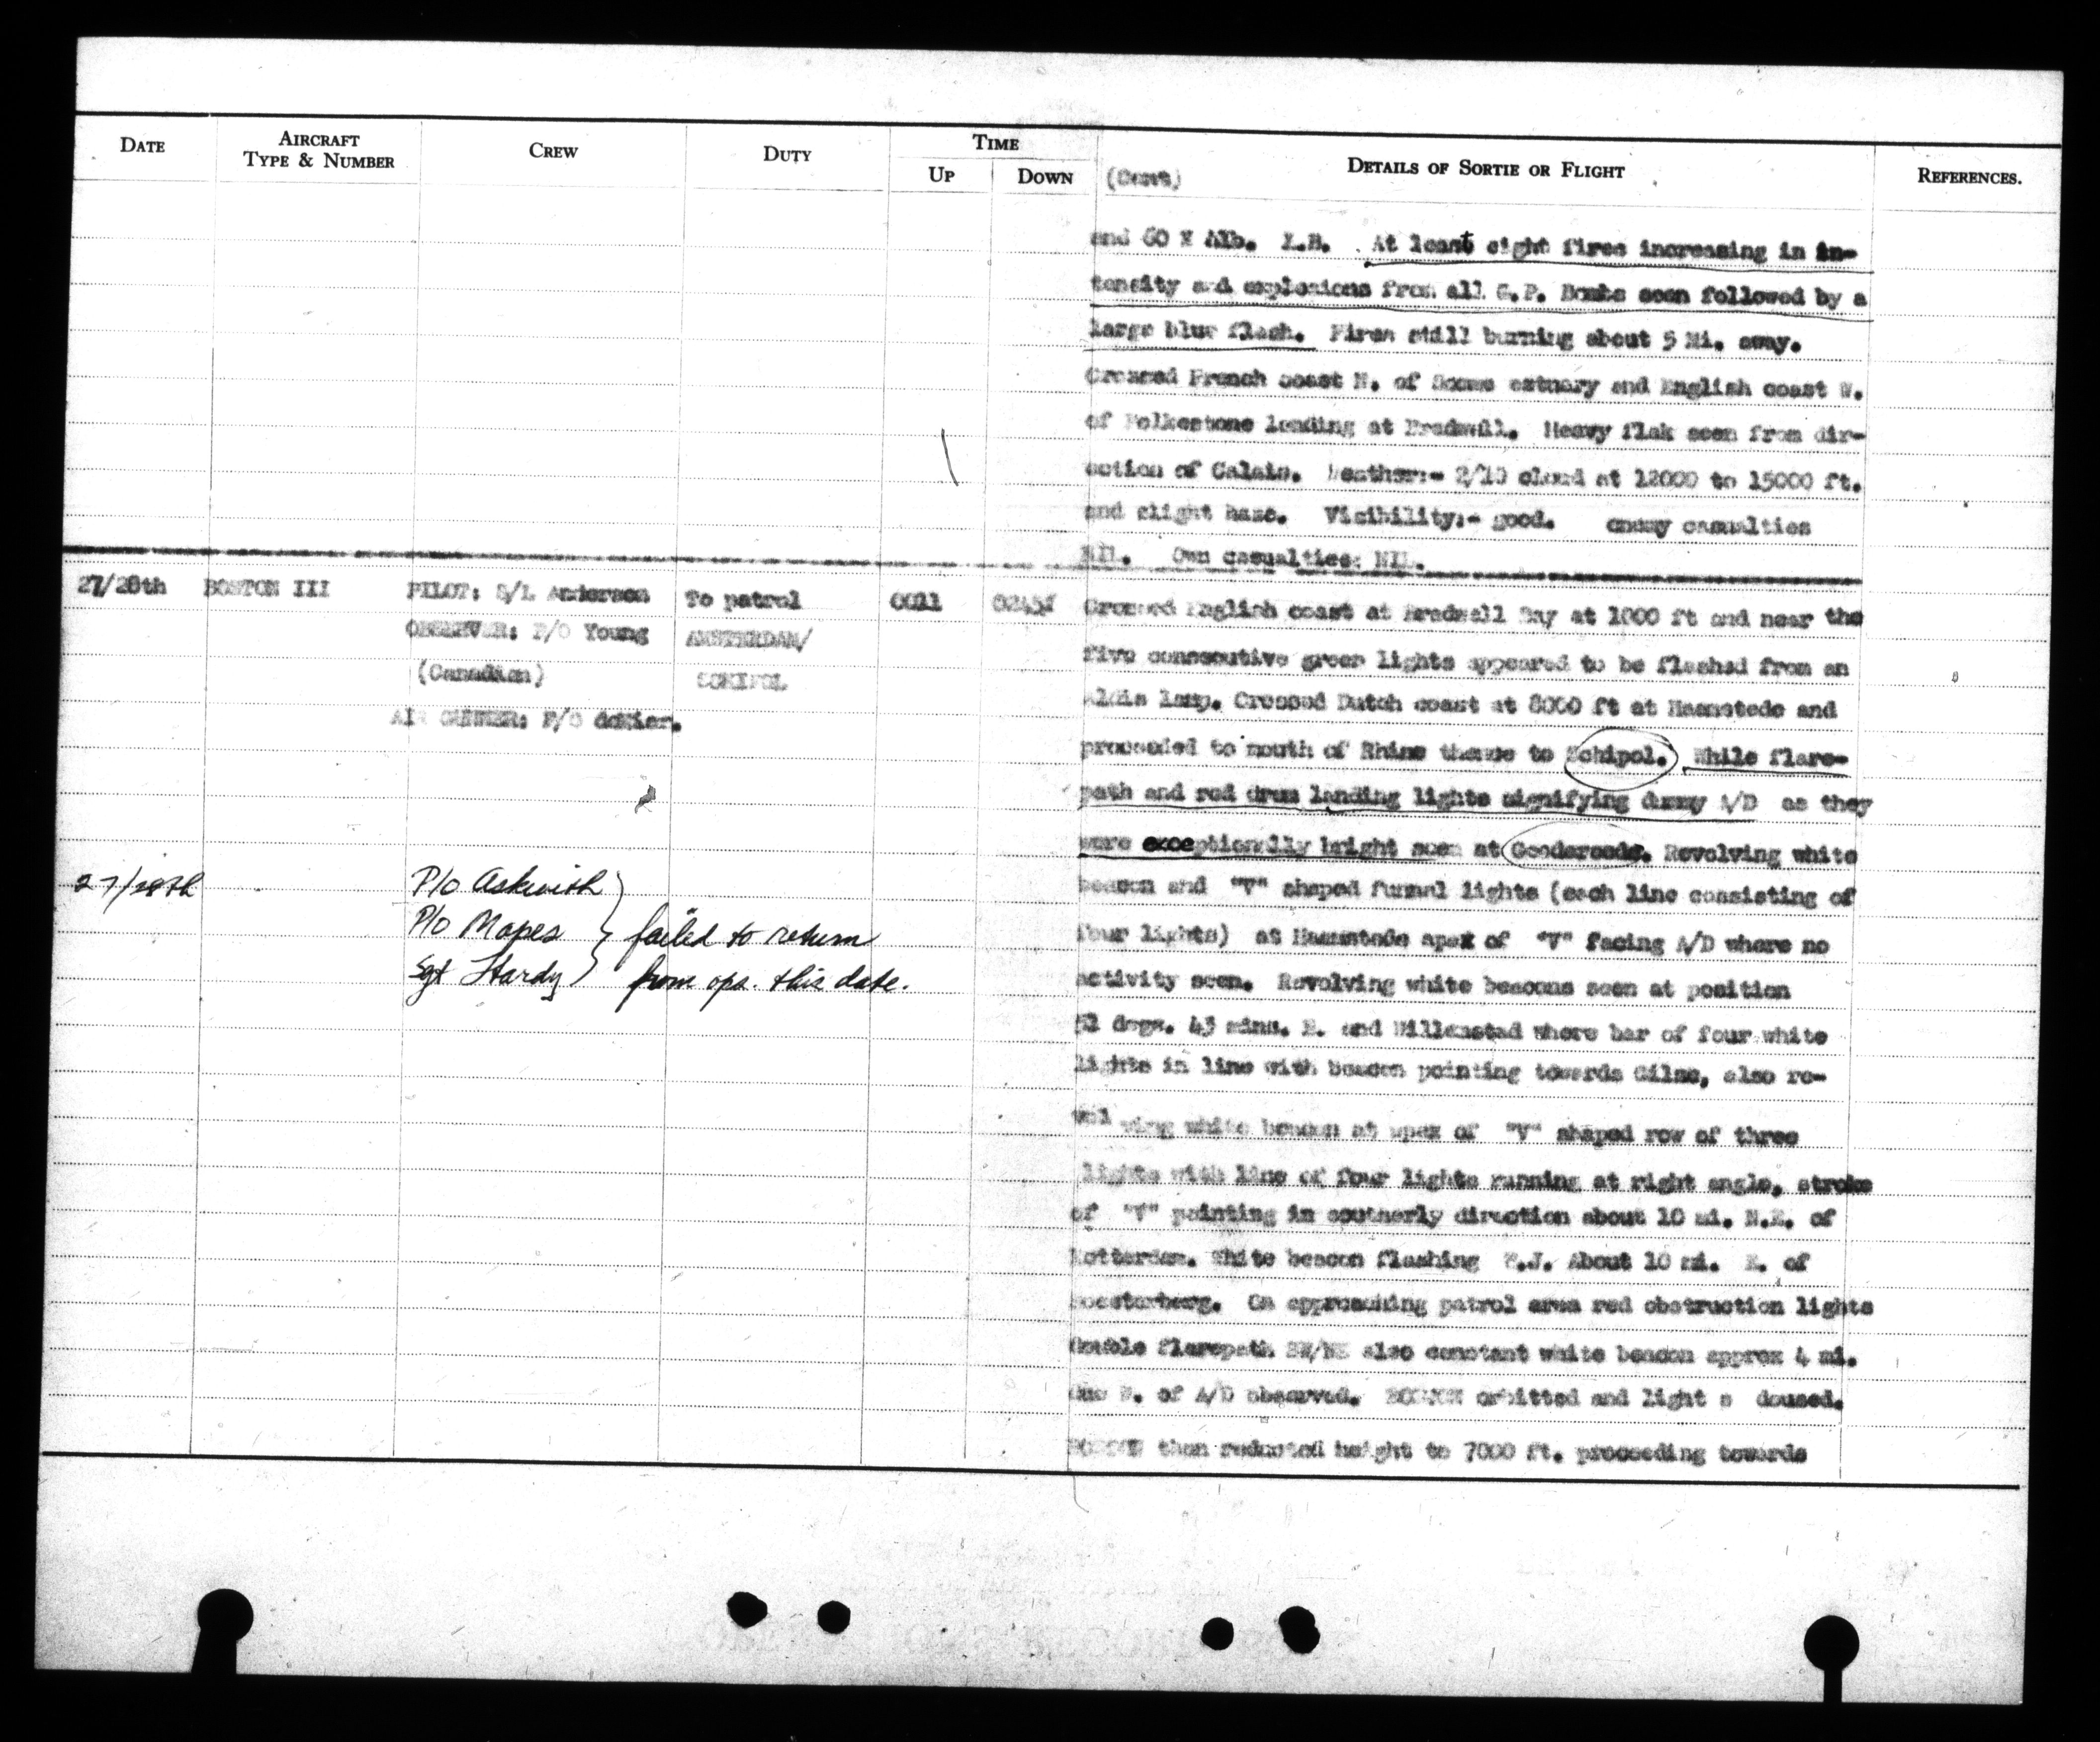 DATE
AIRCRAFT
TYPE & NUMBER
CREW
DUTY
TIME
UP
DOWN
DETAILS OF SORTIE OR FLIGHT
REFERENCES.
(Cont)
and 60 X 4lb. I.B. At least eight fires increasing in in-
tensity and explosions from all G.P. Bombs seen followed by a
large blue flash. Fires still burning about 5 Mi. away.
Crossed French coast N. of Somme estuary and English coast W.
of Folkestone landing at Bradwell. Heavy flak seen from dir-
ection of Calais. Weather:- 2/10 cloud at 12000 to 15000 ft.
and slight haze. Visibility:- good. enemy casualties
NIL. Own casualties: NIL.
27/28th
BOSTON III
PILOT: S/L Anderson
OBSERVER: P/O Young
(Canadian)
AIR GUNNER: P/O
To patrol
AMSTERDAM/
SCHIPOL
0011
Crossed English coast at Bradwell Bay at 1000 ft and near the
five consecutive green lights appeared to be flashed from an
Aldis lamp. Crossed Dutch coast at 8000 ft at Haamstede and
proceeded to mouth of Rhine thence to Schipol. While flare-
path and red drum landing lights signifying dummy A/D as they
were exceptionally bright seen at Goodereede. Revolving white
beacon and "V" shaped funnel lights (each line consisting of
four lights) at Haamstede apex of "V" facing A/D where no
activity seen. Revolving white beacons seen at position
degs. 43 mins. E. and Willemstad where bar of four white
lights in line with beacon pointing towards Gilze, also re-
vol ving white beacon at apex of "V" shaped row of three
lights with line of four lights running at right angle, stroke
of "V" pointing in southerly direction about 10 mi. N.E. of
Rotterdam. White beacon flashing About 10 mi. E. of
Soesterberg. On approaching patrol area red obstruction lights
double flarepath also constant white beacon approx 4 mi.
due of A/D observed. BOSTON orbitted and light s doused.
BOSTON then reducted height to 7000 ft. proceeding towards
27/28th
P/o Askwith
P/o Mapes
Sgt Hardy
failed to return
from ops. this date.